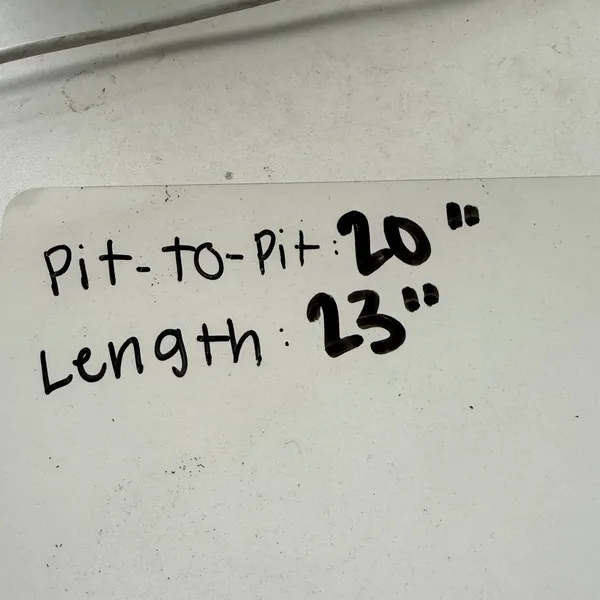 Pit-to-Pit: 20"
Length: 23"